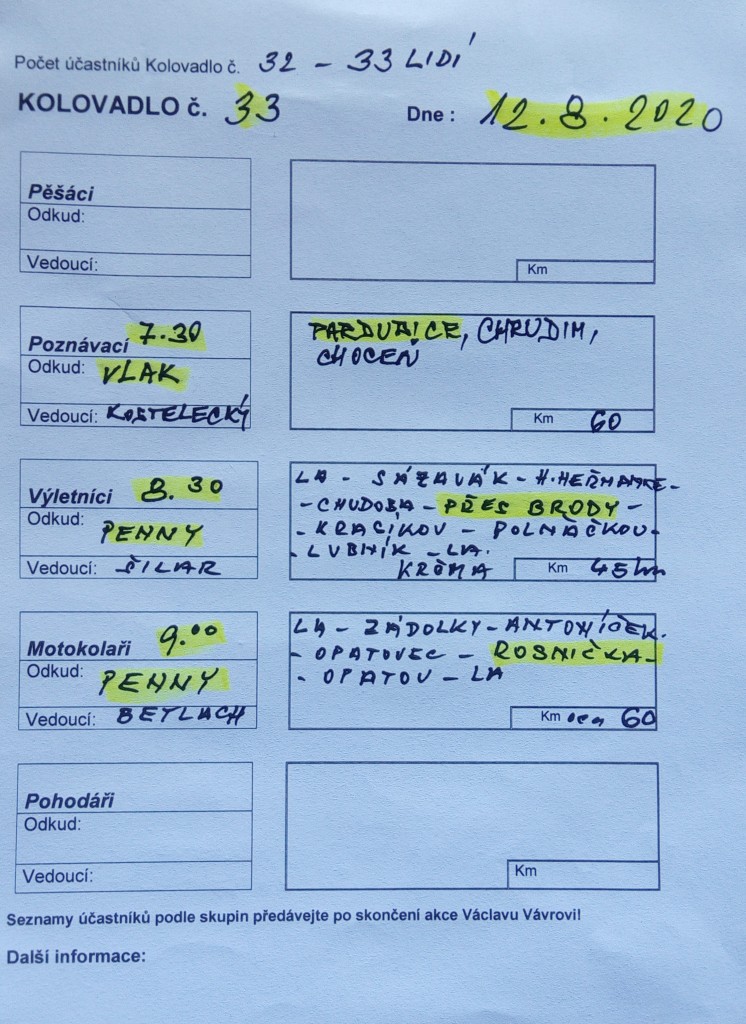 Počet účastníků Kolovadlo č. 32 - 33 LIDÍ
KOLOVADLO č. 33 Dne : 12.8.2020
Pěšáci
Odkud:
Vedoucí:
Km
Poznávací 7.30
Odkud: VLAK
Vedoucí: KOSTELECKÝ
PARDUBICE, CHRUDIM,
CHOCEŇ
Km 60
Výletníci 8.30
Odkud: PENNY
Vedoucí: ŠILAR
LA - SÁZAVÁK - H.HEŘMANCE -
- CHUDOBA - PŘES BRODY -
- KRACÍKOV - POLNAČKOU -
- LUBNÍK - LA.
KRČMA Km 45 km
Motokolaři 9.00
Odkud: PENNY
Vedoucí: BETLACH
LA - ZÁDOLKY - ANTONÍČEK.
- OPATOVEC - ROSNIČKA -
- OPATOV - LA
Km 60
Pohodáři
Odkud:
Vedoucí:
Km
Seznamy účastníků podle skupin předávejte po skončení akce Václavu Vávrovi!
Další informace: